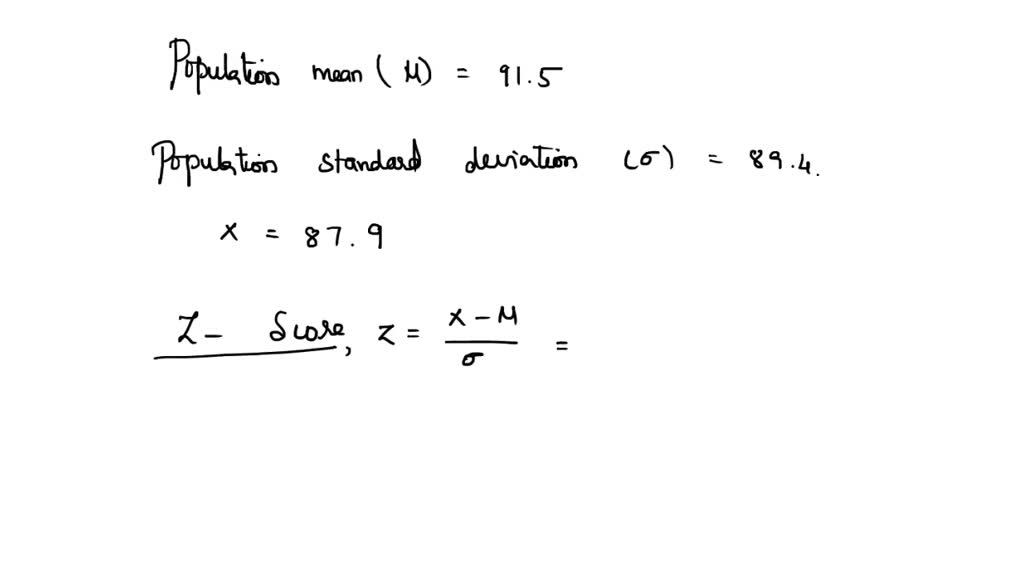 Population mean (μ) = 91.5
Population standard deviation (σ) = 89.4.
x = 87.9
Z- Score, z = x - μ / σ =